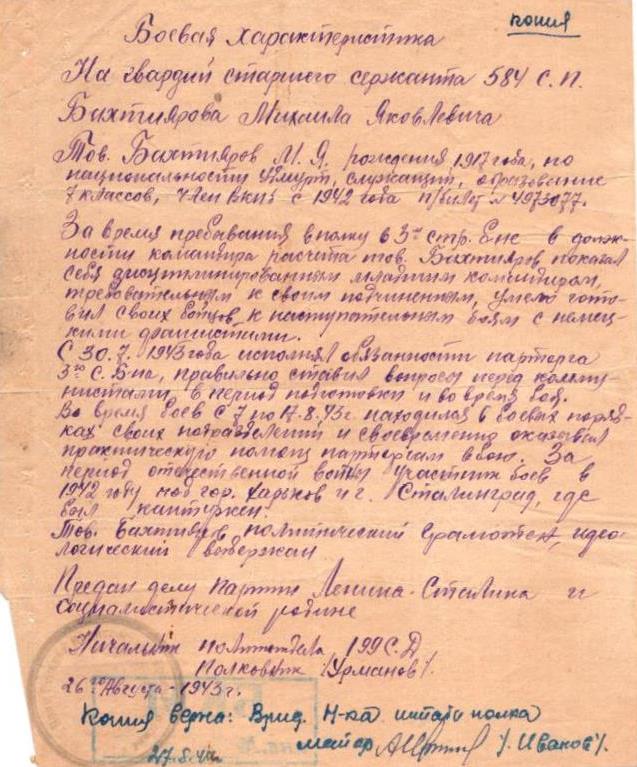 копия
Боевая характеристика
На гвардии старшего сержанта 584 с.п.
Бахтиярова Михаила Яковлевича
Тов. Бахтияров М. Я. рождения 1917 года, по
национальности удмурт, служащий, образование
7 классов, член ВКПб с 1942 года п/билет № 4973077.
За время пребывания в полку в 3м стр. б-не в долж-
ности командира расчета тов. Бахтияров показал
себя дисциплинированным младшим командиром,
требовательным к своим подчиненным, умело гото-
вил своих бойцов к наступательным боям с немец-
кими фашистами.
С 30.7. 1943 года исполнял обязанности парторга
3го с. б-на, правильно ставил вопросы перед комму-
нистами, в период подготовки и во время боя.
Во время боев с 7 по 17.8.43г. находился в боевых поряд-
ках своих подразделений и своевременно оказывал
практическую помощь парторгам в бою. За
период отечественной войны участник боев в
1942 году под гор. Харьков и г. Сталинград, где
был контужен.
Тов. Бахтияров политический грамотен, идео-
логический выдержан
Предан делу партии Ленина-Сталина и
социалистической родине
Начальник политотдела 199 С.Д
Полковник /Урманов/.
26го Августа - 1943 г.
Копия верна: Врид. Н-ка штаба полка
майор /Иванов/.